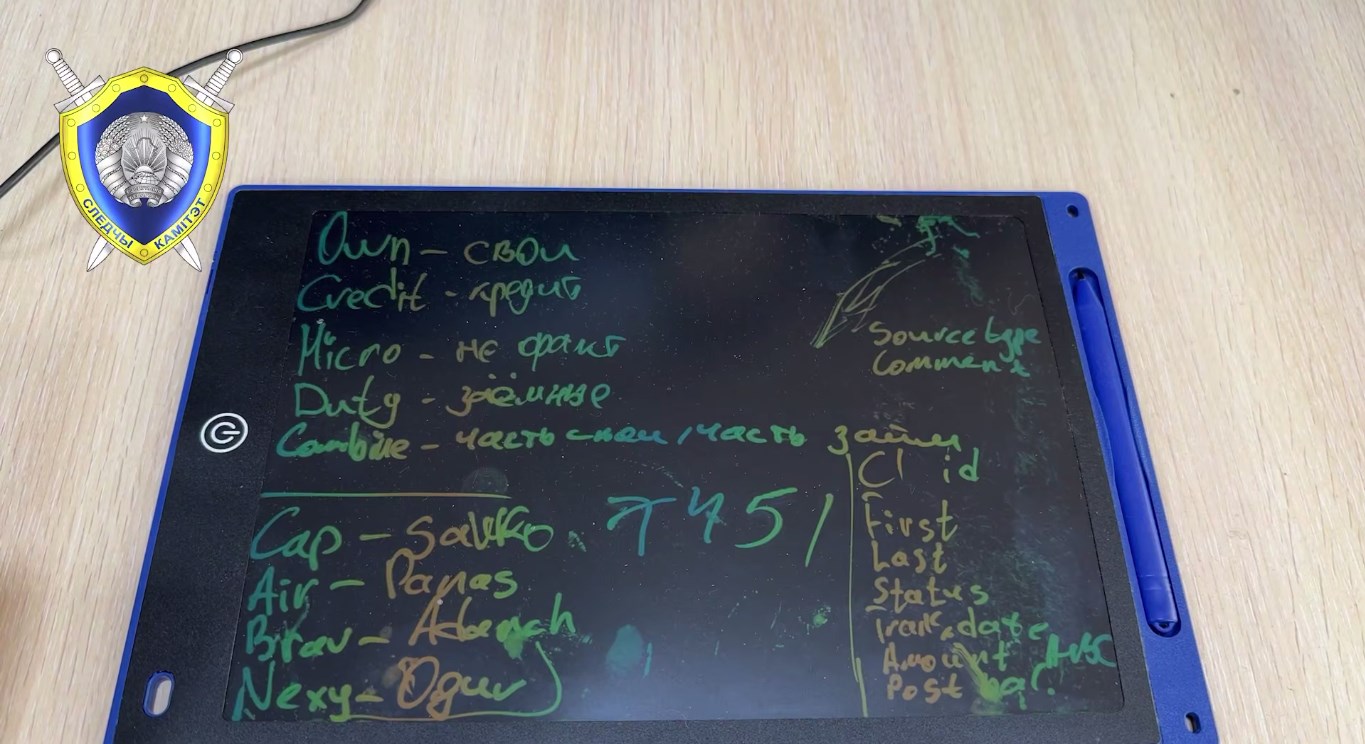 СЛЕДЧЫ КАМІТЭТ
Own - свои
Credit - кредит
Micro - не факт
Duty - заёмные
Combine - часть свои, часть заём
Source type
Comment
Cap - Sakko
Air - Panas
Brav -
Nexy - Ogur
7451
Cl id
First
Last
Status
Tran.date
Amount
Post